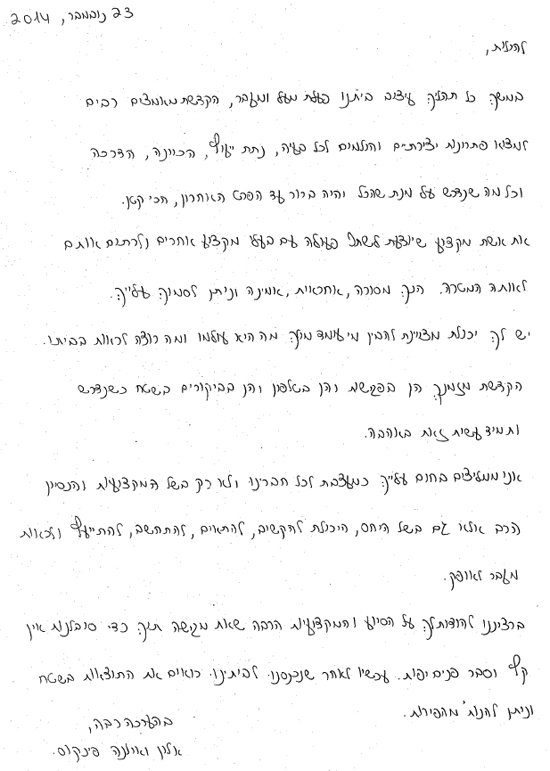 23 נובמבר, 2014
במשך כל תהליך עיצוב ביתנו פעלת מעל ומעבר, הקדשת מאמצים רבים
למצוא פתרונות יצירתיים והולמים לכל בעיה, נתת ייעוץ, הכוונה, הדרכה
וכל מה שנדרש על מנת שהכל יהיה ברור עד הפרט האחרון, הכי קטן.
את אשת מקצוע שיודעת לשתף פעולה עם בעלי מקצוע אחרים ולרתום אותם
לאותה המטרה. הנך מסורה, אחראית, אמינה וניתן לסמוך עלייך.
יש לך יכולת מצויינת להבין מי עומד מולך מה היא עולמו ומה רוצה לראות בביתו.
הקדשת מזמנך הן בפגישות והן בטלפון והן בביקורים בשטח כשנדרש
ותמיד עשית זאת באהבה.
אנו ממליצים בחום עלייך כמעצבת לכל חברינו ולא רק בשל המקצועיות והנסיון
הרב אלא גם בשל היחס, היכולת להקשיב, להתאים, להתחשב, להתייעץ ולראות
מעבר לאופק.
ברצוננו להודות לך על הסיוע והמקצועיות הרבה שאת מקשה תוך כדי סובלנות אין
קץ וסבר פנים יפות. עכשיו לאחר שנכנסנו לביתינו רואים את התוצאות בשטח
וניתן להנות מהפירות.
בהערכה רבה,
אלון ואילנה פינקוס.